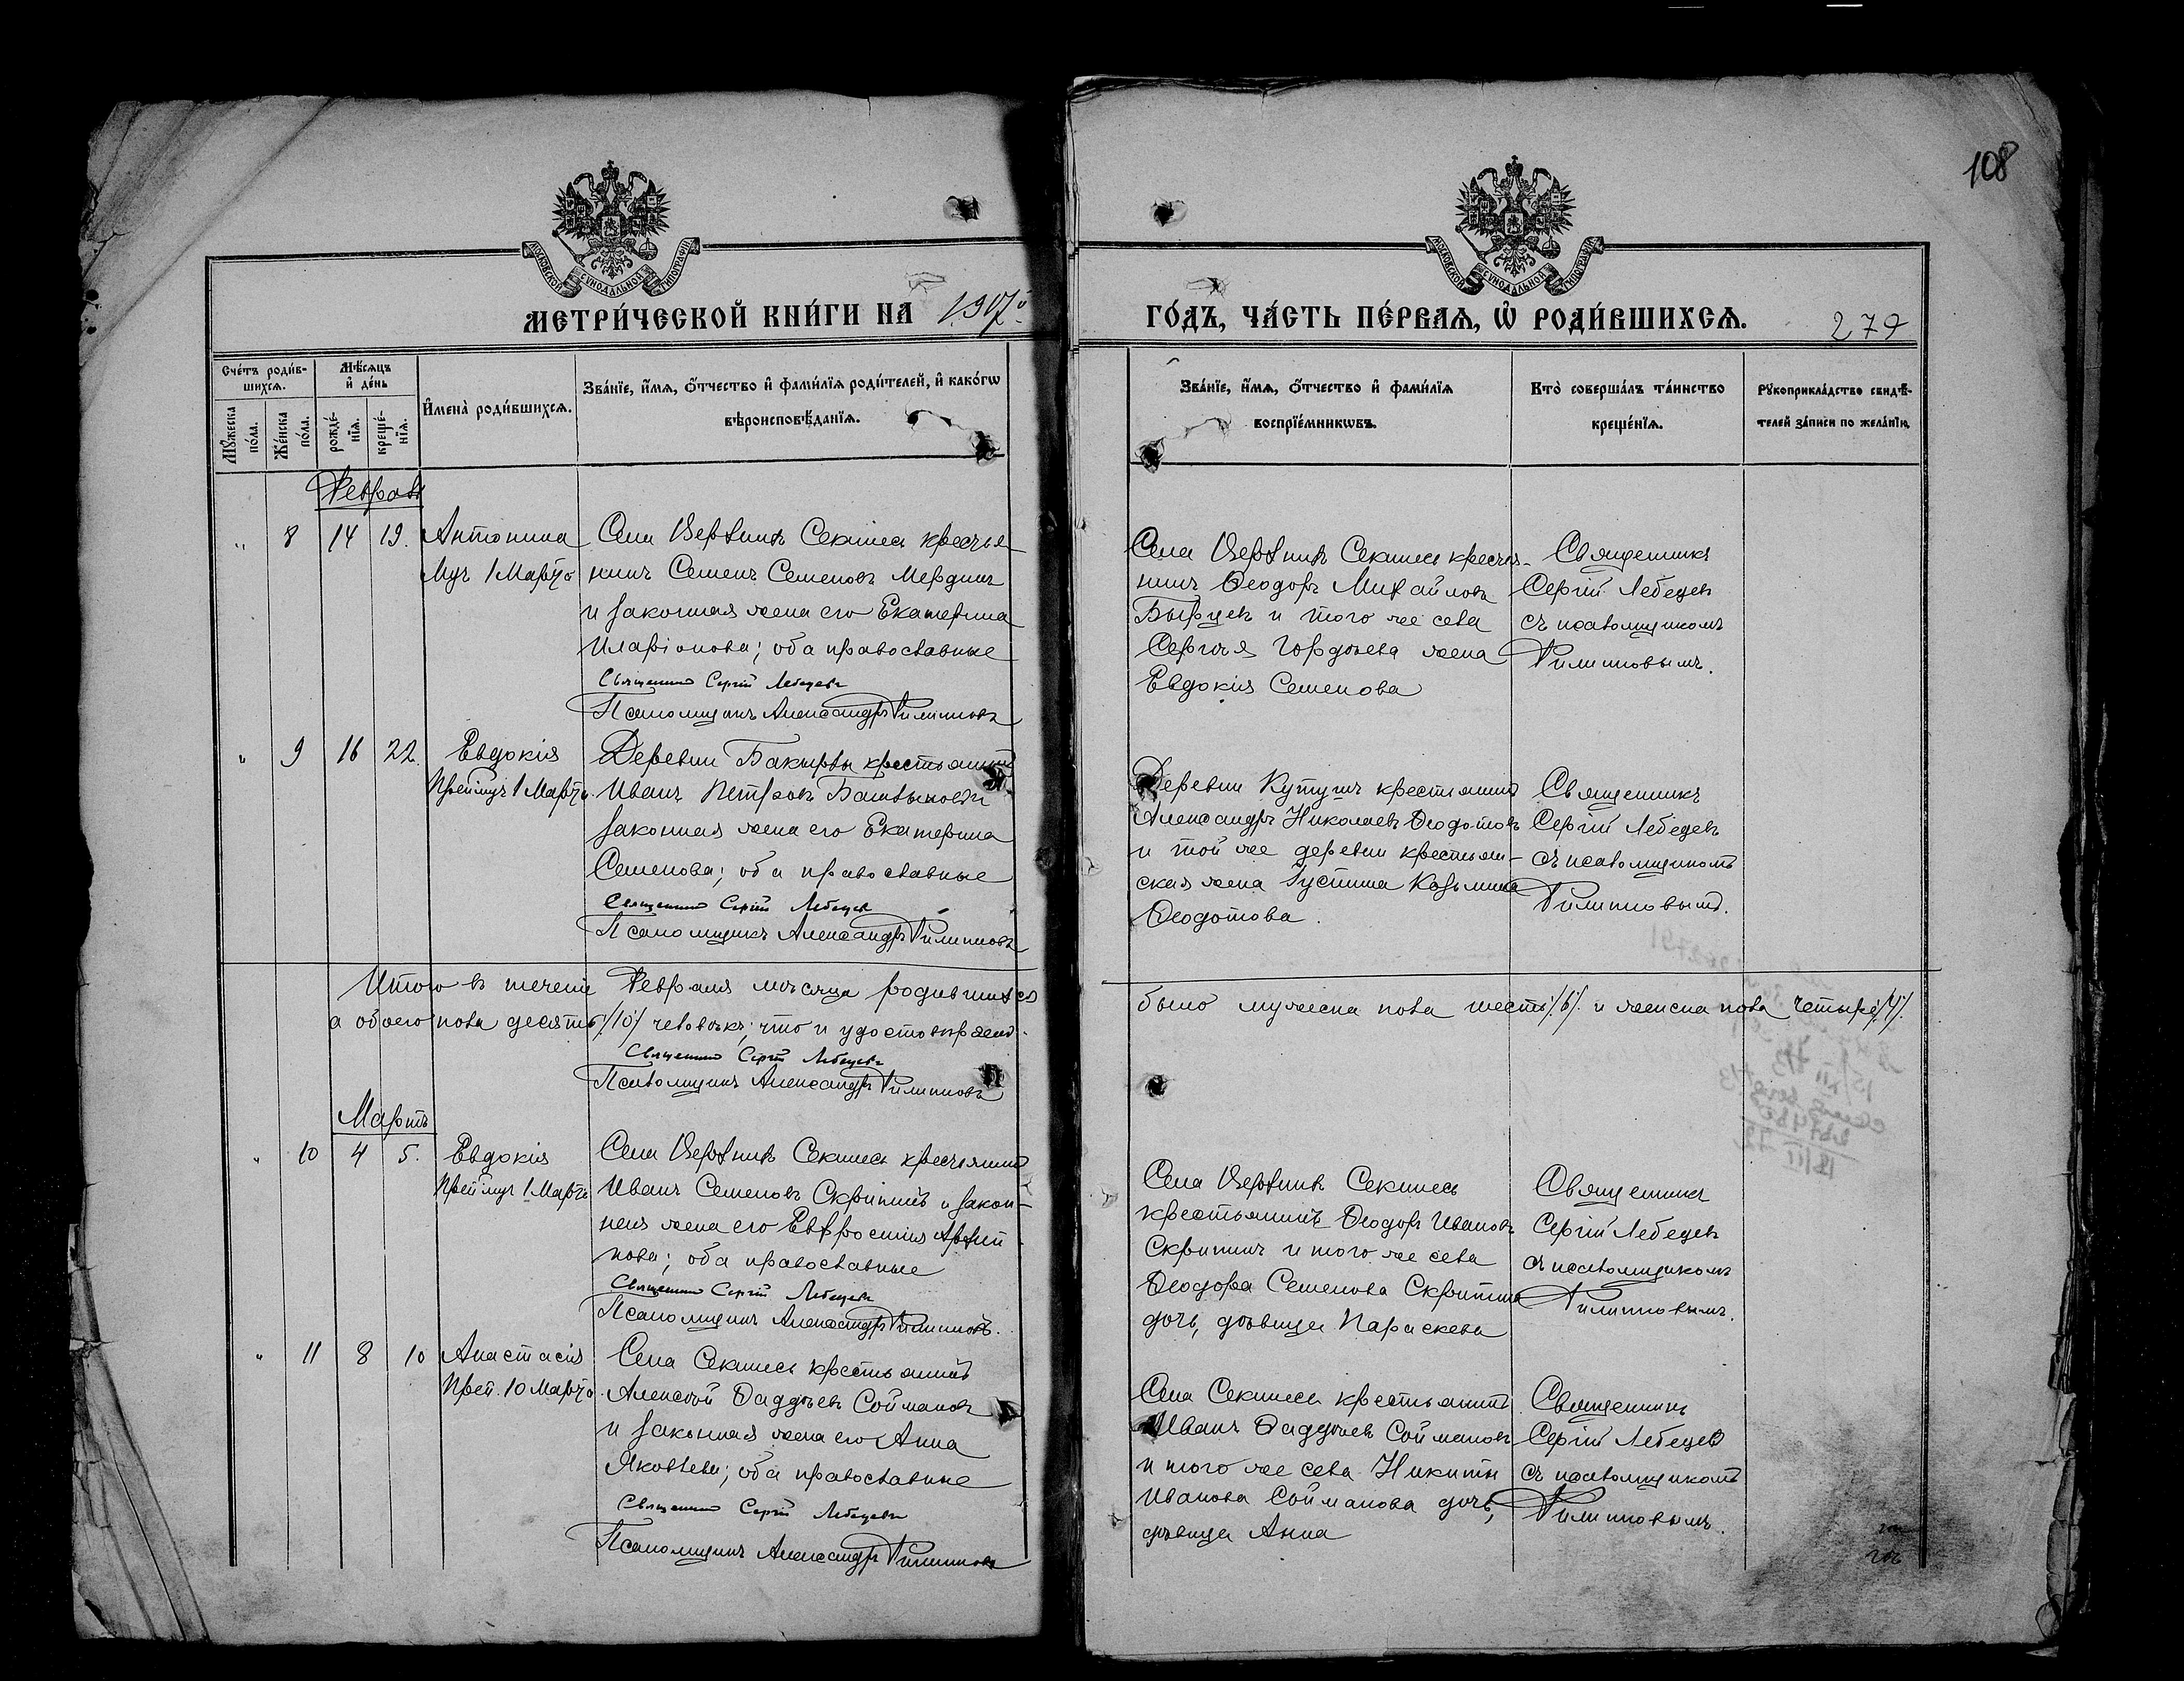 108
МОСКОВСКОЙ СѴНОДАЛЬНОЙ ТИПОГРАФІИ
МОСКОВСКОЙ СѴНОДАЛЬНОЙ ТИПОГРАФІИ
МЕТРИ́ЧЕСКОЙ КНИ́ГИ НА 1907й
ГО́ДЪ, ЧА́СТЬ ПЕ́РВАЯ, Ѡ҆ РОДИ́ВШИХСЯ.
279
Сче́тъ роди́в-
шихся.
Мꙋ́жеска по́ла.
Же́нска по́ла.
Мѣ́сяцъ и҆ де́нь
рожде́-нїя.
креще́-нїя.
И҆мена̀ роди́вшихся.
Зва́нїе, и҆́мя, ѻ҆́тчество и҆ фами́лїя роди́телей, и҆ како́гѡ
вѣроисповѣ́данїя.
Зва́нїе, и҆́мя, ѻ҆́тчество и҆ фами́лїя
воспрїе́мникѡвъ.
Кто̀ соверша́лъ та́инство
креще́нїя.
Рꙋкоприкла́дство свидѣ́-
телей за́писи по жела́нїю.
Февраль
„ 8 14 19. Антонина
Муч 1 Марта
Села Верхнихъ Секинесь крестья-
нинъ Семенъ Семеновъ Мердинъ
и законная жена его Екатерина
Иларіонова; оба православные
Священникъ Сергій Лебедевъ
Псаломщикъ Александръ Филипповъ
Села Верхнихъ Секинесь крестья-
нинъ Ѳеодоръ Михайловъ
и того же села
Сергѣя Гордѣева жена
Евдокія Семенова
Священникъ
Сергій Лебедевъ
съ псаломщикомъ
Филипповымъ.
„ 9 16 22. Евдокія
Преп муч 1 Марта.
Деревни Бакирвы крестьянинъ
Иванъ Петровъ
законная жена его Екатерина
Семенова; оба православные
Священникъ Сергій Лебедевъ
Псаломщикъ Александръ Филипповъ
Деревни Кутушъ крестьянинъ
Александръ Николаевъ Ѳеодотовъ
и той же деревни крестьян-
ская жена Іустина Козьмина
Ѳеодотова.
Священникъ
Сергій Лебедевъ
съ псаломщикомъ
Филипповымъ.
Итого въ теченіе Февраля мѣсяца родившихся
было мужеска пола шесть /6/. и женска пола четыре /4/.
а обоего пола десять /10/ человѣкъ; что и удостовѣряемъ.
Священникъ Сергій Лебедевъ
Псаломщикъ Александръ Филипповъ
Мартъ
„ 10 4 5. Евдокія
Преп муч 1 Марта
Села Верхнихъ Секинесь крестьянинъ
Иванъ Семеновъ Скрипинъ и закон-
ная жена его Евфросинія Архип-
пова; оба православные
Священникъ Сергій Лебедевъ
Псаломщикъ Александръ Филипповъ.
Села Верхнихъ Секинесь
крестьянинъ Ѳеодоръ Ивановъ
Скрипинъ и того же села
Ѳеодора Семенова Скрипина
дочь, дѣвица Параскева
Священникъ
Сергій Лебедевъ
съ псаломщикомъ
Филипповымъ.
„ 11 8 10 Анастасія
Преп. 10 Марта.
Села Секинесь крестьянинъ
Алексѣй Ѳаддѣевъ Соймановъ
и законная жена его Анна
Яковлева; оба православные
Священникъ Сергій Лебедевъ
Псаломщикъ Александръ Филипповъ
Села Секинесь крестьянинъ
Иванъ Ѳаддѣевъ Соймановъ
и того же села Никиты
Иванова Сойманова дочь,
дѣвица Анна
Священникъ
Сергій Лебедевъ
съ псаломщикомъ
Филипповымъ.